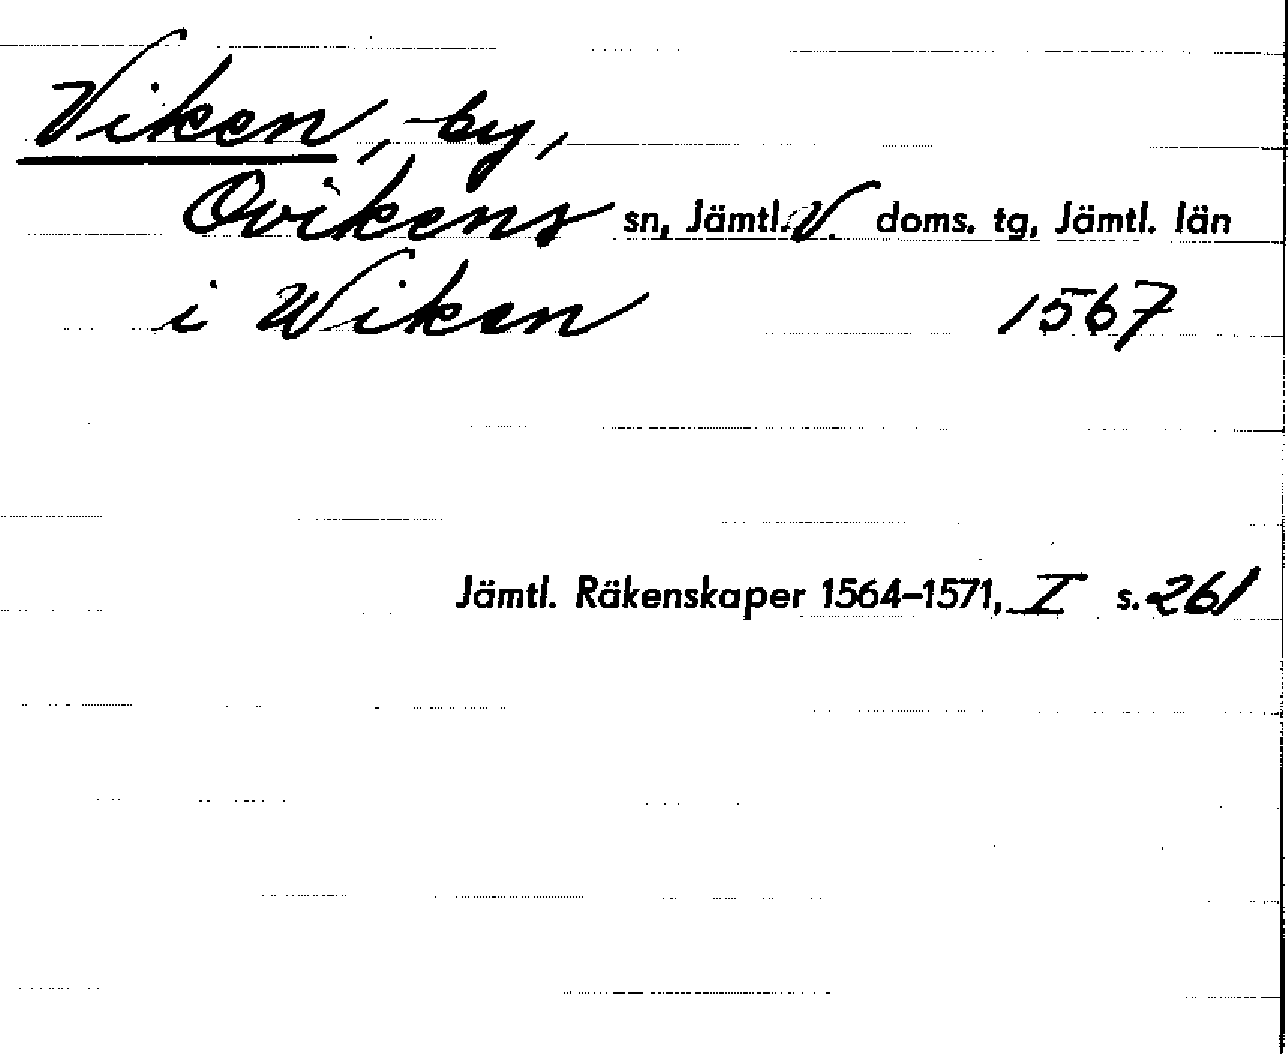 Viken, by,
Ovikens sn, Jämtl. V. doms. tg, Jämtl. län
i Wiken 1567
Jämtl. Räkenskaper 1564–1571, I s. 261